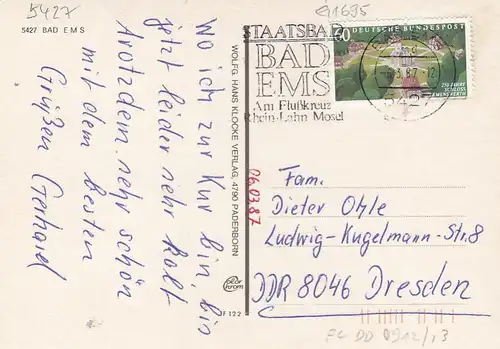 5427
5427 BAD EMS
Wo ich zur Kur bin, ist
jetzt leider sehr kalt
trotzdem sehr schön
mit dem besten
Grüßen Gerhard
WOLFG. HANS KLOCKE VERLAG, 4790 PADERBORN
color
chrom
F 122
06.03.87
G1695
STAATSBAD
BAD
EMS
Am Flußkreuz
Rhein-Lahn Mosel
DEUTSCHE BUNDESPOST
250 JAHRE
SCHLOSS
CLEMENSWERTH
5427
Fam.
Dieter Ohle
Ludwig-Kugelmann-Str. 8
DDR 8046 Dresden